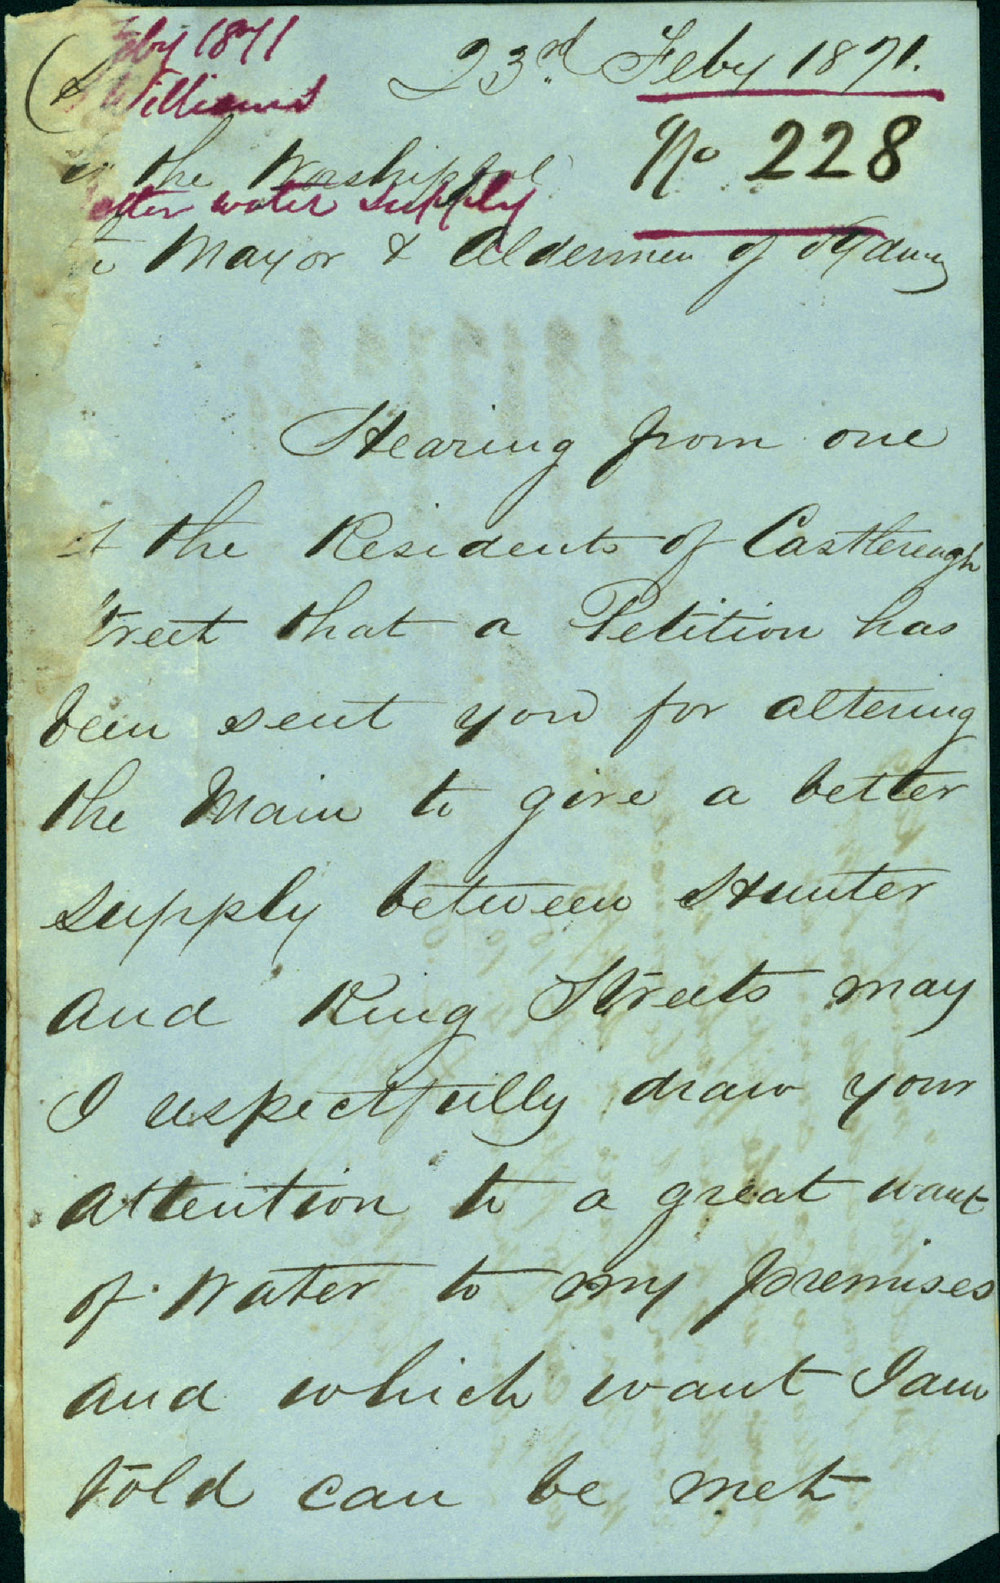 Feby 1871
Williams
23rd Feby 1871.
No 228
the Worshipful
water supply
Mayor & Aldermen of Sydney
Hearing from one
the Residents of Castlereagh
treet that a Petition has
been sent you for altering
the Main to give a better
supply between Hunter
and King Streets may
I respectfully draw your
attention to a great want
of Water to my premises
and which want I am
told can be met